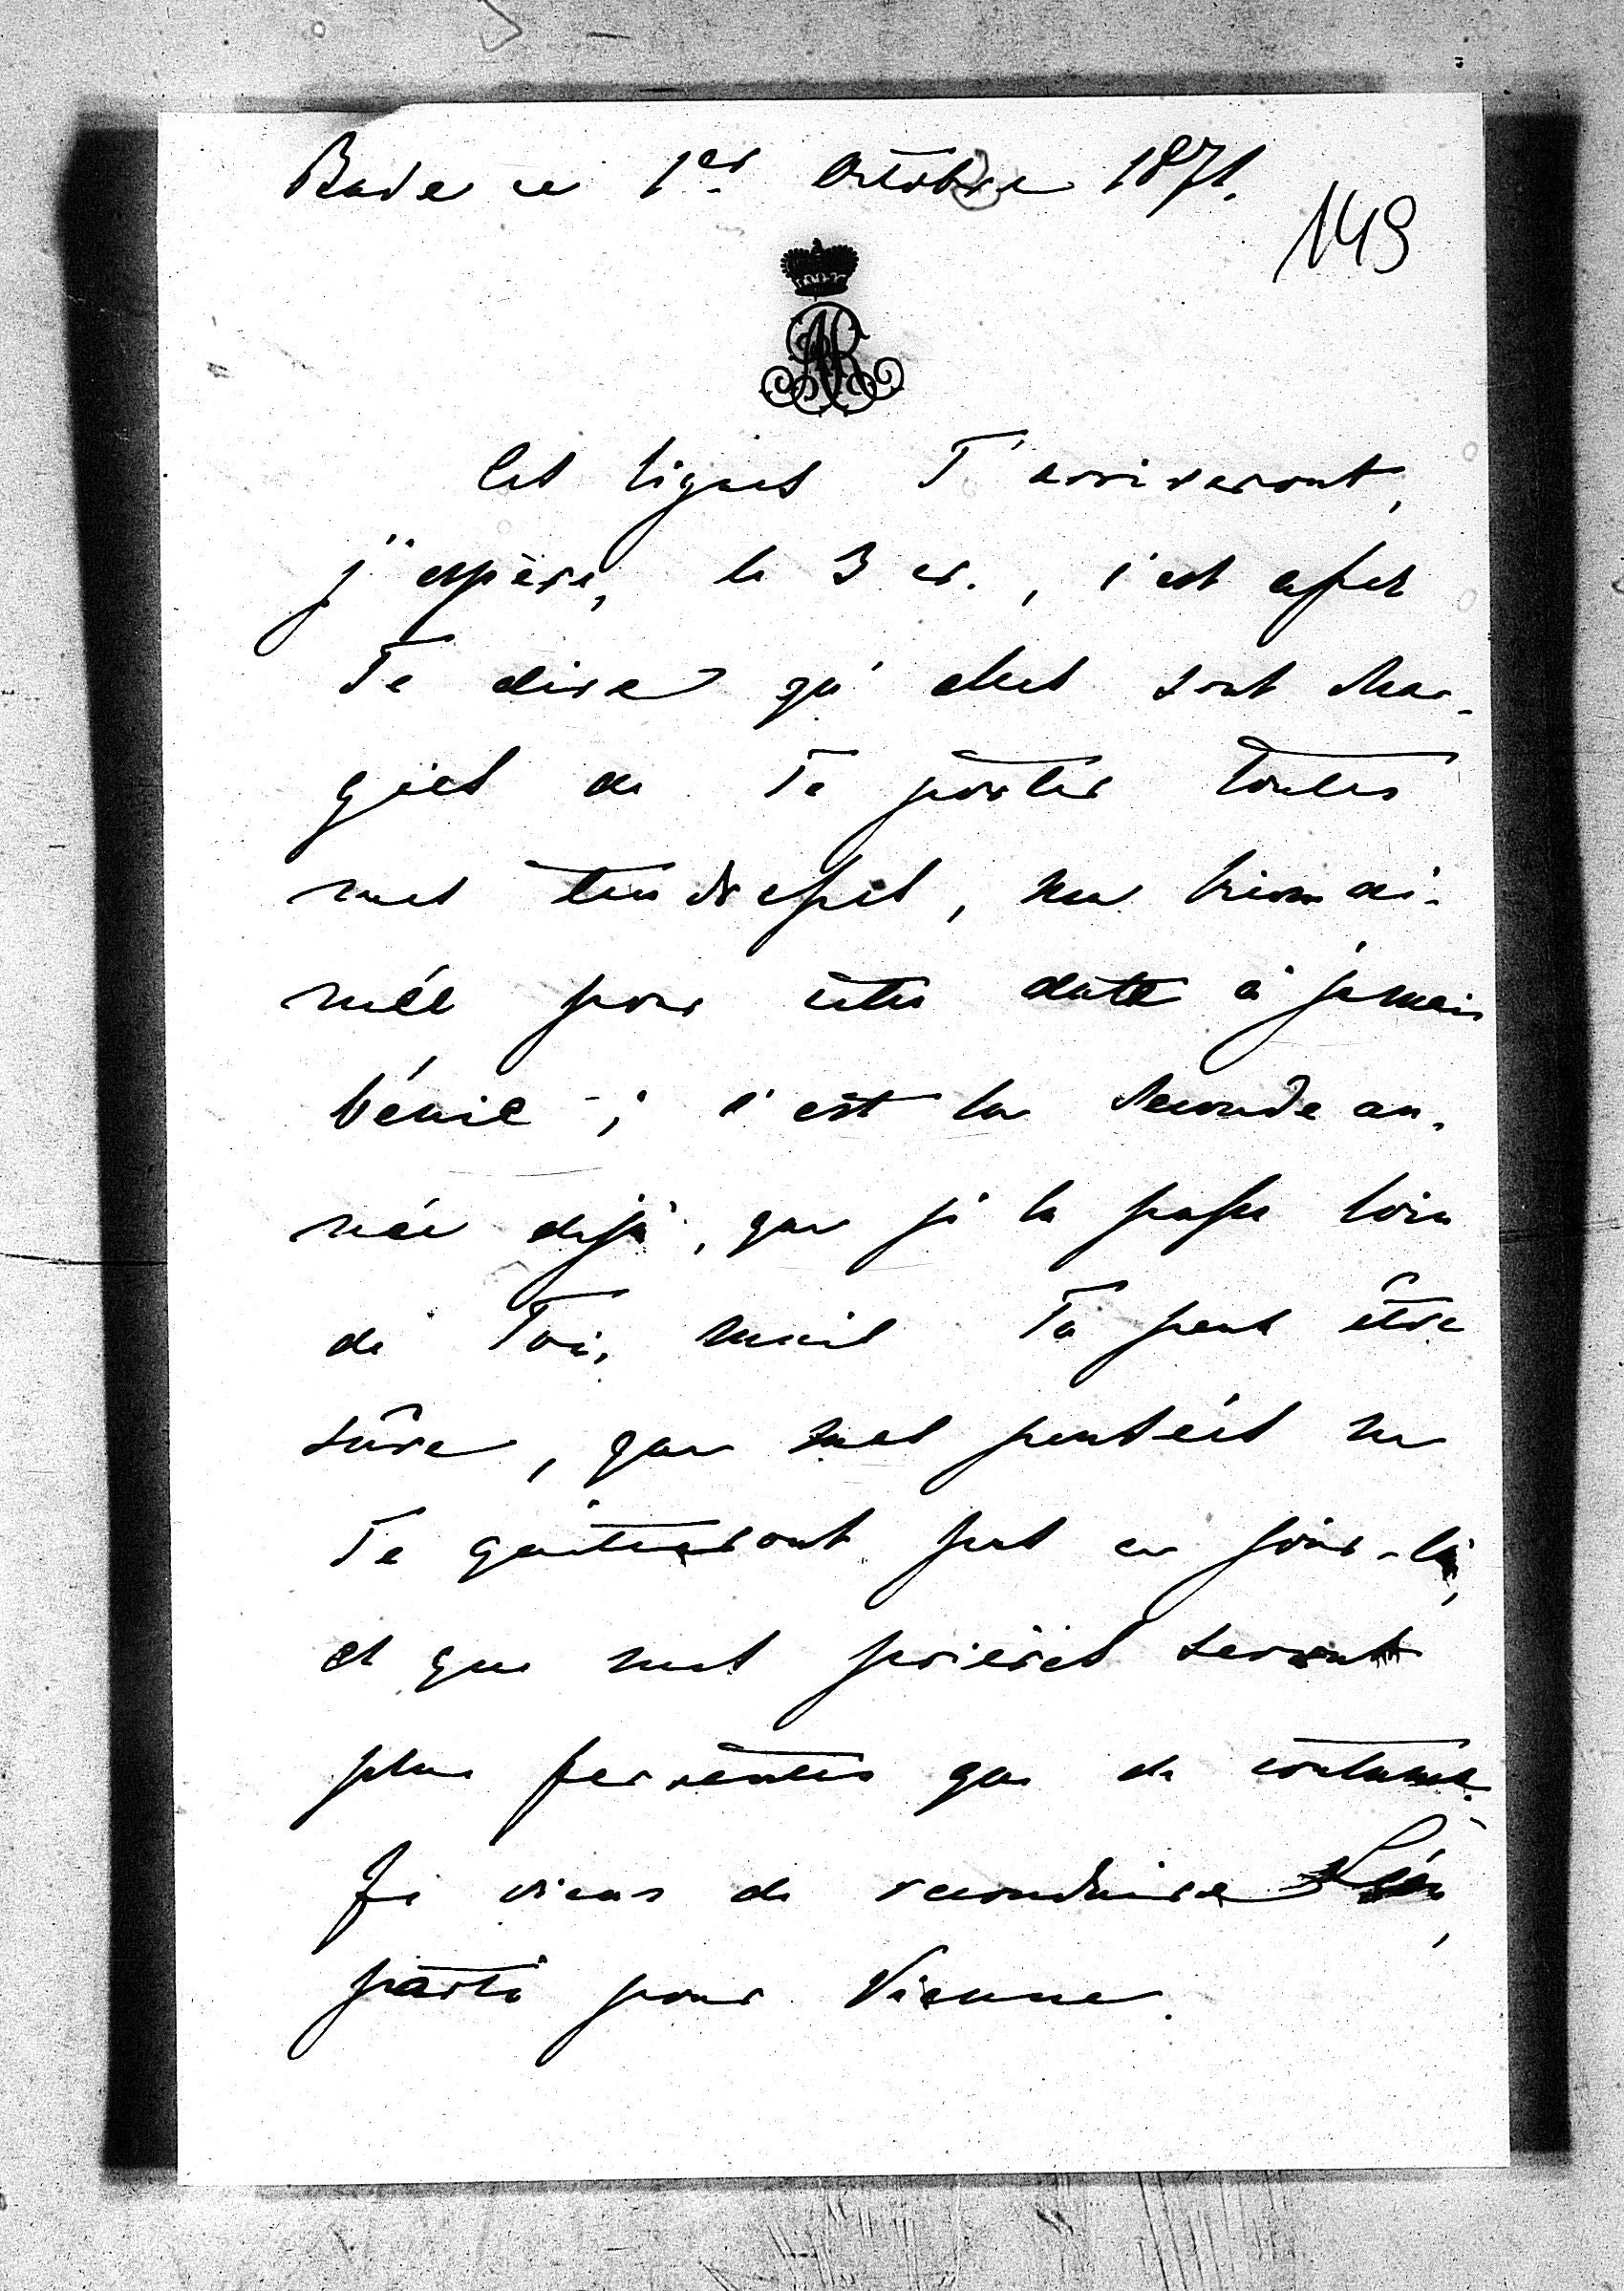 Bade ce 1er Octobre 1871.
149
AR
Ces lignes T'arriveront,
j'espère, le 3 cr., c'est assez
Te dire qu'elles sont char-
gées de Te porter toutes
mes tendresses, ma bien ai-
mée pour cette date à jamais
bénie; c'est la seconde an-
née déjà, que je la passe loin
de Toi, mais Tu peux être
sûre, que mes pensées ne
Te quitteront pas ce jour-là,
et que mes prières seront
plus ferventes que de coutume.
Je viens de reconduire
parti pour Vienne.